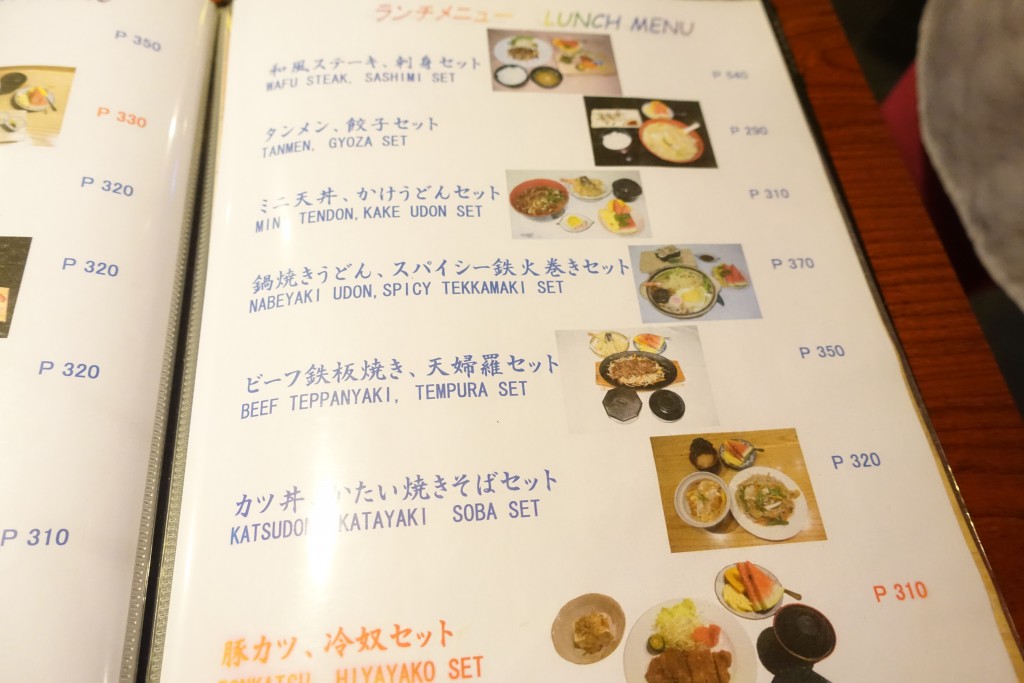 P 350
P 330
P 320
P 320
P 320
P 310
ランチメニュー LUNCH MENU
和風ステーキ、刺身セット
WAFU STEAK, SASHIMI SET
P 540
タンメン、餃子セット
TANMEN, GYOZA SET
P 290
ミニ天丼、かけうどんセット
MIN TENDON,KAKE UDON SET
P 310
鍋焼きうどん、スパイシー鉄火巻きセット
NABEYAKI UDON,SPICY TEKKAMAKI SET
P 370
ビーフ鉄板焼き、天婦羅セット
BEEF TEPPANYAKI, TEMPURA SET
P 350
カツ丼、かたい焼きそばセット
KATSUDON KATAYAKI SOBA SET
P 320
豚カツ、冷奴セット
TONKATSU, HIYAYAKO SET
P 310